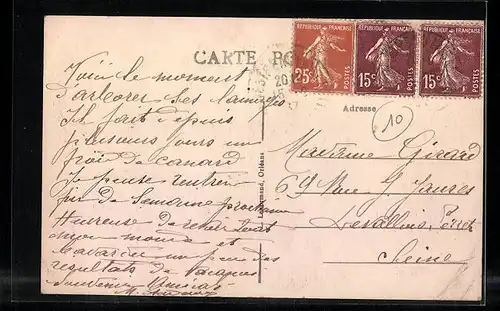 CARTE PO
REPUBLIQUE FRANÇAISE
25c
POSTES
REPUBLIQUE FRANÇAISE
15c
POSTES
REPUBLIQUE FRANÇAISE
15c
POSTES
Adresse
10
Voici le moment
d'arborer ses lainages
Il fait depuis
plusieurs jours un
froid de canard
Je pense rentrer
fin de semaine prochaine
Heureuse de revoir tout
mon monde et
savoir un peu des
résultats de
Souvenirs Amicas
Madame Girard
69 Rue J Jaurès
Levallois Perret
Seine
Lenormand, Orléans